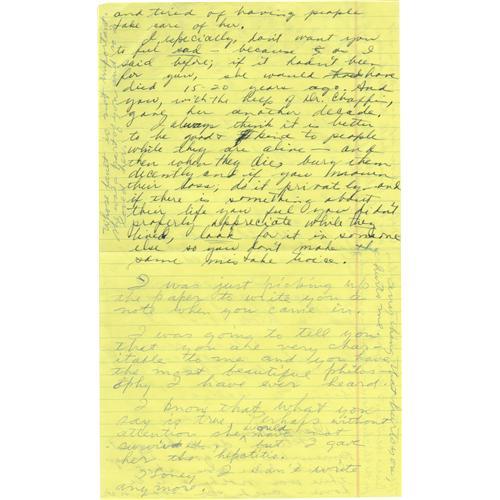 and tired of having people
take care of her.
I, especially, don't want you
to feel sad - because as I
said before; if it hadn't been
for you, she would have
died 15-20 years ago. And
you, with the help of Dr. Chaffin,
gave her another decade.
I always think it is better
to be good & kind to people
while they are alive - and
then when they die, bury them
decently and if you mourn
their loss; do it privately and
if there is something about
their life you feel you didn't
properly appreciate while they
lived, look for it in someone
else so you don't make the
same mistake twice.
I was just picking up
the paper to write you a
note when you came in.
I was going to tell you
that you are very char-
itable to me and you have
the most beautiful philos-
ophy I have ever heard.
I know that what you
say is true. Perhaps without
attention she would have not
survived, but I gave
her the hepatitis.
Honey, I can't write
any more.